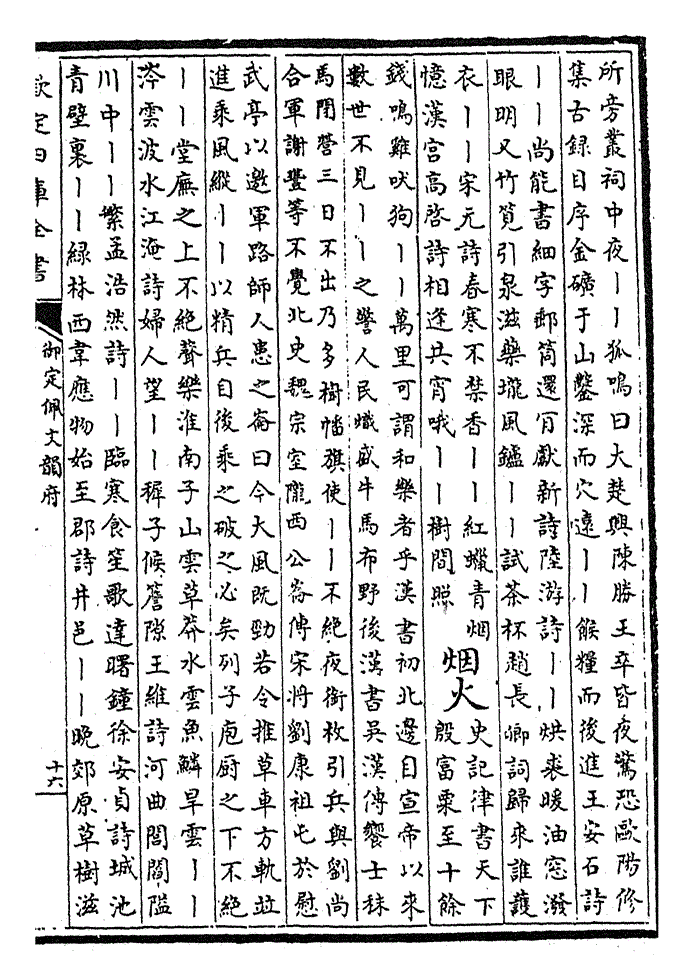 所旁叢祠中夜丨丨狐鳴曰大楚興陳勝王卒皆夜驚恐歐陽修
集古録目序金礦于山鑿深而穴逺丨丨餱糧而後進王安石詩
丨丨尚能書細字郵筒還肎獻新詩陸游詩丨丨烘裘暖油窓潑
眼明又竹筧引泉滋藥壠風鑪丨丨試茶杯趙長卿詞歸來誰護
衣丨丨宋元詩春寒不禁香丨丨紅蠟青烟
憶漢宫高啓詩相逢共宵哦丨丨樹間照
烟火
史記律書天下
殷富粟至十餘
錢鳴雞吠狗丨丨萬里可謂和樂者乎漢書初北邉自宣帝以來
數世不見丨丨之警人民熾盛牛馬布野後漢書吳漢傳饗士秣
馬閉營三日不出乃多樹幡旗使丨丨不絶夜銜枚引兵與劉尚
合軍謝豐等不覺北史魏宗室隴西公崙傳宋將劉康祖屯於慰
武亭以邀軍路師人患之崙曰今大風既勁若令推草車方軌並
進乘風縱丨丨以精兵自後乘之破之必矣列子庖厨之下不絶
丨丨堂廡之上不絶聲樂淮南子山雲草莽水雲魚鱗旱雲丨丨
涔雲波水江淹詩婦人望丨丨穉子候簷隙王維詩河曲閭閻隘
川中丨丨繁孟浩然詩丨丨臨寒食笙歌達曙鐘徐安貞詩城池
青壁裏丨丨緑林西韋應物始至郡詩井邑丨丨晚郊原草樹滋
欽定四庫全書
御定佩文韻府
十六